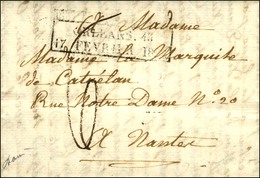 A Madame
ORLEANS. 43
17 FEVRIER 18
Madame La Marquise
de Catuélan
Rue Notre Dame N° 20
A Nantes